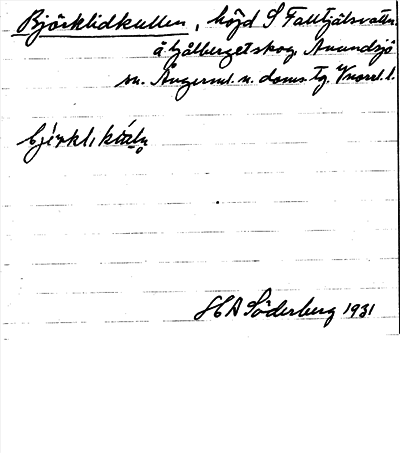 Björklidkullen, höjd S Falltjälsvattn.
å Gålberget skog, Anundsjö
sn. Ångerml. n. doms.tg. Vnorrl. l.
H A Söderberg 1931